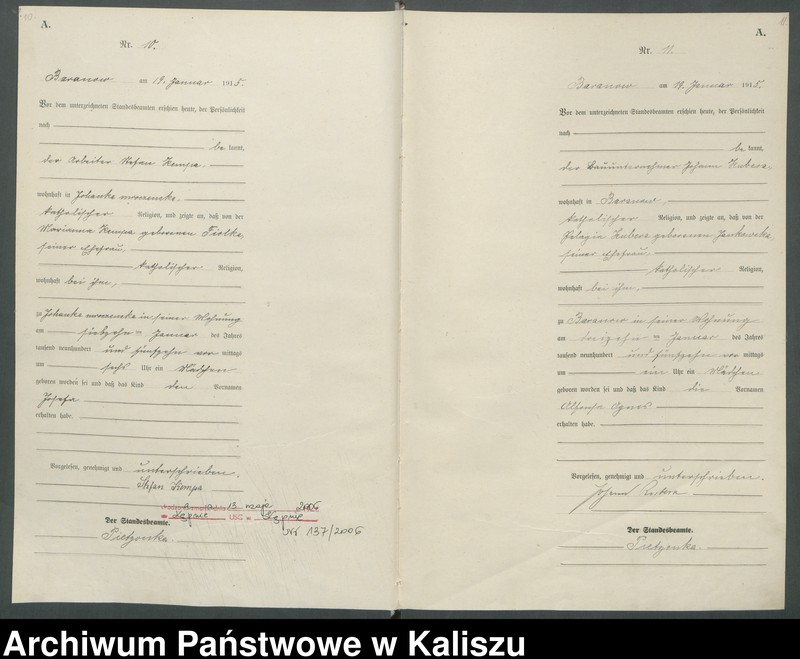 A.
Nr. 10.
Baranow am 19. Januar 1915.
Vor dem unterzeichneten Standesbeamten erschien heute, der Persönlichkeit
nach
be kannt,
der Arbeiter Stefan Kempa,
wohnhaft in Johanka
katholischer Religion, und zeigte an, daß von der
Marianna Kempa geborenen
seiner Ehefrau,
katholischer Religion,
wohnhaft bei ihm,
zu Johanka in seiner Wohnung
am siebzehn ten Januar des Jahres
tausend neunhundert und fünfzehn vor mittags
um sechs Uhr ein Mädchen
geboren worden sei und daß das Kind den Vornamen
Josefa
erhalten habe.
Vorgelesen, genehmigt und unterschrieben.
Stefan Kempa
13 maja 2006
USC w
Nr 137/2006
Der Standesbeamte.
Pietzonka.
A.
Nr. 11.
Baranow am 19. Januar 1915.
Vor dem unterzeichneten Standesbeamten erschien heute, der Persönlichkeit
nach
be kannt,
der Bauunternehmer Johann Kubera,
wohnhaft in Baranow,
katholischer Religion, und zeigte an, daß von der
Pelagia Kubera geborenen Jankowska,
seiner Ehefrau,
katholischer Religion,
wohnhaft bei ihm,
zu Baranow in seiner Wohnung
am dreizehn ten Januar des Jahres
tausend neunhundert und fünfzehn vor mittags
um ein Uhr ein Mädchen
geboren worden sei und daß das Kind die Vornamen
Agnes
erhalten habe.
Vorgelesen, genehmigt und unterschrieben.
Johann Kubera
Der Standesbeamte.
Pietzonka.
Archiwum Państwowe w Kaliszu